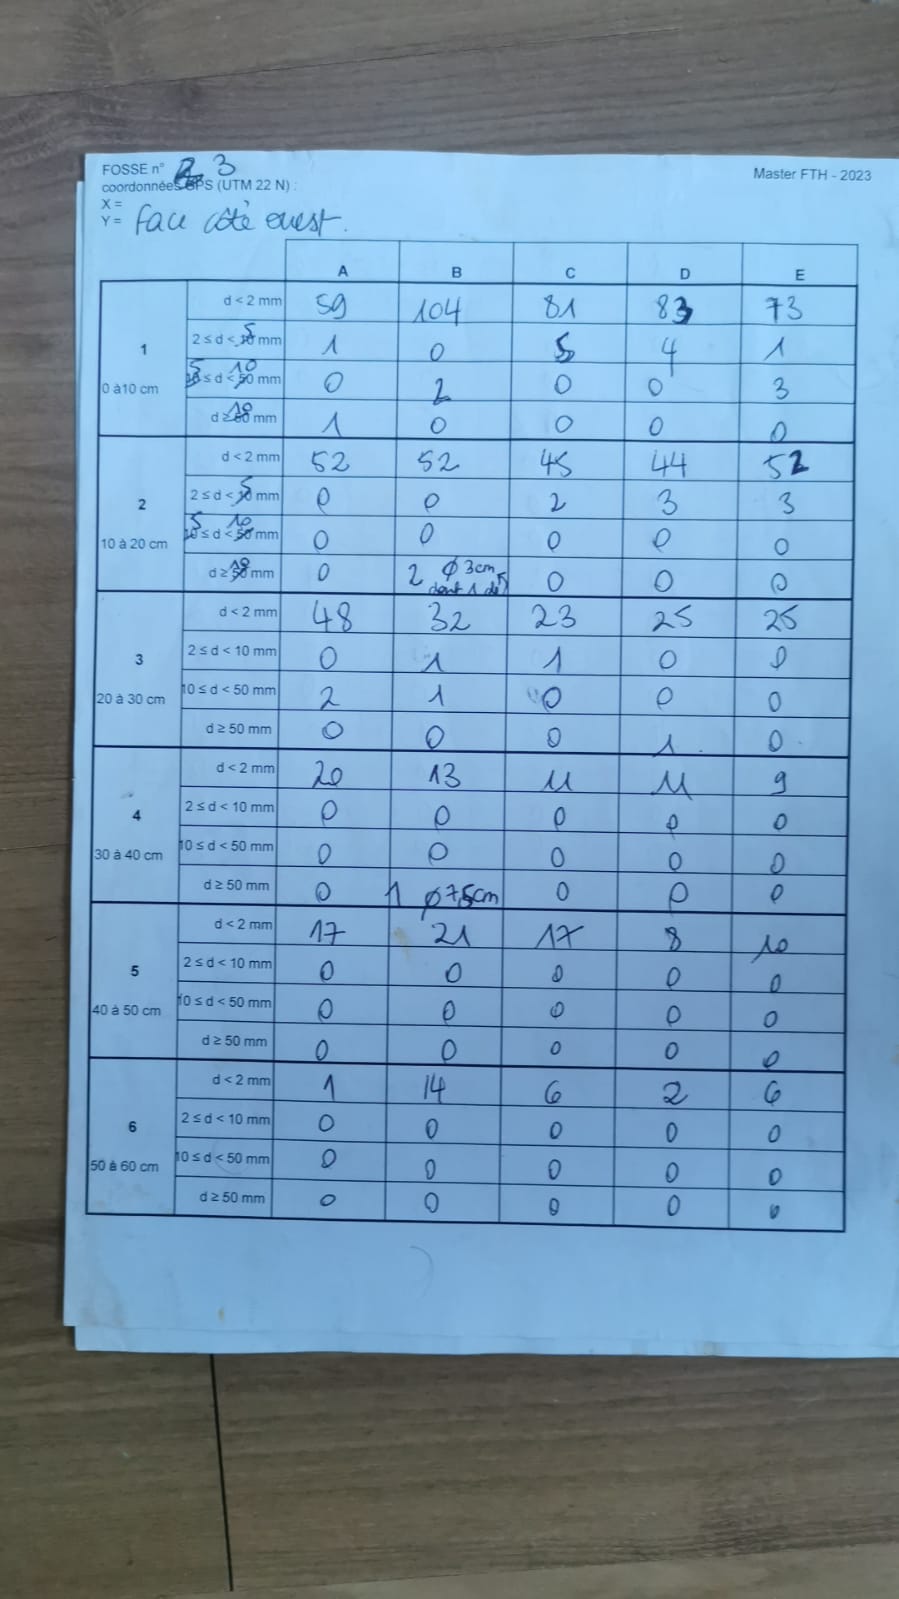 FOSSE n° 3
Master FTH - 2023
coordonnées GPS (UTM 22 N) :
X =
Y = Face côté ouest.
A B C D E
1
0 à10 cm
d < 2 mm 59 104 81 83 73
2 ≤ d < 5 mm 1 0 5 4 1
5 ≤ d < 10 mm 0 2 0 0 3
d ≥ 10 mm 1 0 0 0 0
2
10 à 20 cm
d < 2 mm 52 52 45 44 52
2 ≤ d < 5 mm 0 0 2 3 3
5 ≤ d < 10 mm 0 0 0 0 0
d ≥ 10 mm 0 2 Ø 3cm dont 1 0 0 0
3
20 à 30 cm
d < 2 mm 48 32 23 25 25
2 ≤ d < 10 mm 0 1 1 0 0
10 ≤ d < 50 mm 2 1 0 0 0
d ≥ 50 mm 0 0 0 1 0
4
30 à 40 cm
d < 2 mm 20 13 11 11 9
2 ≤ d < 10 mm 0 0 0 0 0
10 ≤ d < 50 mm 0 0 0 0 0
d ≥ 50 mm 0 1 Ø7,5cm 0 0 0
5
40 à 50 cm
d < 2 mm 17 21 17 8 10
2 ≤ d < 10 mm 0 0 0 0 0
10 ≤ d < 50 mm 0 0 0 0 0
d ≥ 50 mm 0 0 0 0 0
6
50 à 60 cm
d < 2 mm 1 14 6 2 6
2 ≤ d < 10 mm 0 0 0 0 0
10 ≤ d < 50 mm 0 0 0 0 0
d ≥ 50 mm 0 0 0 0 0